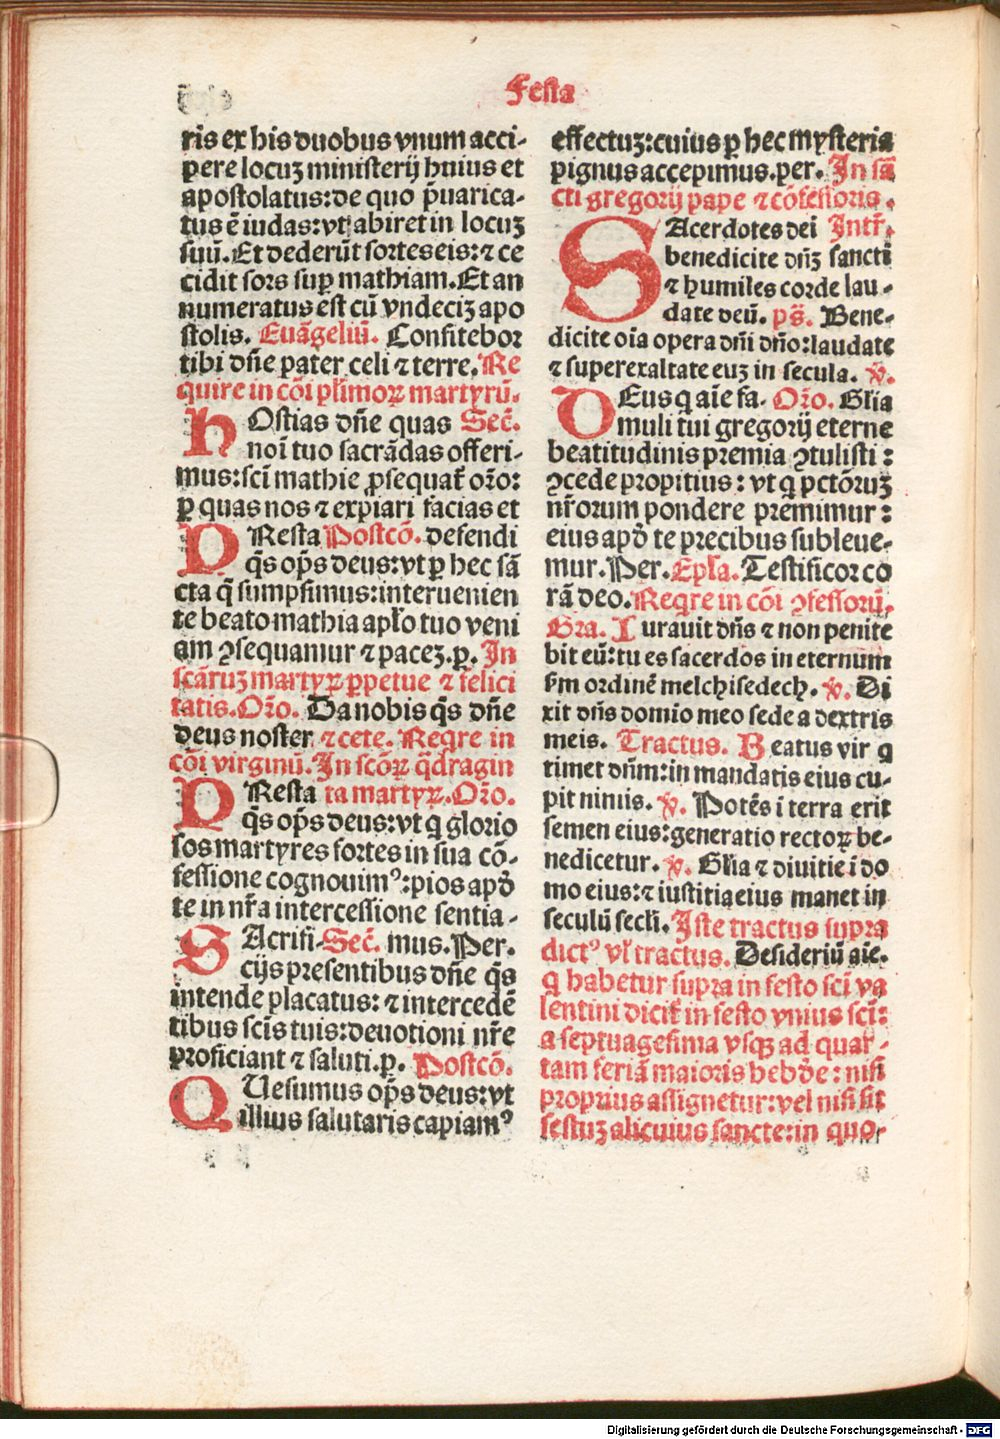 Festa
ris ex his duobus vnum acci-
pere locuȝ ministerij huius et
apostolatus: de quo p̄uarica-
tus ē iudas: vt abiret in locuȝ
suū. Et dederūt sortes eis: ⁊ ce
cidit sors suꝑ mathiam. Et an
numeratus est cū vndeciȝ apo
stolis. Euāgeliū. Confitebor
tibi dn̄e pater celi ⁊ terre. Re
quire in cōi pl̄imoꝝ martyrū.
HOstias dn̄e quas Sec̄.
noī tuo sacrādas offeri-
mus: scī mathie ꝓsequat̄ or̄o:
ꝑ quas nos ⁊ expiari facias et
PResta Postcō. defendi
q̄s op̄s deus: vt ꝑ hec sā
cta q̄ sumpsimus: interuenien
te beato mathia apl̄o tuo veni
am ꝯsequamur ⁊ paceȝ. ꝑ. In
scāruȝ martyꝝ ꝑpetue ⁊ felici
tatis. Or̄o. Da nobis q̄s dn̄e
deus noster ⁊ cete. Reqre in
cōi virginū. In scōꝝ q̄dragin
PResta ta martyꝝ. Or̄o.
q̄s op̄s deus: vt q glorio
sos martyres fortes in sua cō-
fessione cognouimꝰ: pios apd̄
te in nr̄a intercessione sentia-
SAcrifi- Sec̄. mus. Per.
cijs presentibus dn̄e q̄s
intende placatus: ⁊ intercedē
tibus scīs tuis: deuotioni nr̄e
proficiant ⁊ saluti. ꝑ. Postcō.
QUesumus op̄s deus: vt
illius salutaris capiamꝰ
effectuȝ: cuius ꝑ hec mysteria
pignus accepimus. per. In sā
cti gregorij pape ⁊ cōfessoris.
SAcerdotes dei Intr̄.
benedicite dn̄ȝ sancti
⁊ humiles corde lau-
date deū. ps̄. Bene-
dicite oīa opera dn̄i dn̄o: laudate
⁊ superexaltate euȝ in secula. ℣.
DEus q aīe fa- Or̄o. Glīa
muli tui gregorij eterne
beatitudinis premia ꝯtulisti:
ꝯcede propitius: vt q pctōruȝ
nr̄orum pondere premimur:
eius apd̄ te precibus subleue-
mur. Per. Epl̄a. Testificor co
rā deo. Reqre in cōi ꝯfessorū.
Gra. Iurauit dn̄s ⁊ non penite
bit eū: tu es sacerdos in eternum
sm̄ ordinē melchisedech. ℣. Di
xit dn̄s domio meo sede a dextris
meis. Tractus. Beatus vir q
timet dn̄m: in mandatis eius cu-
pit nimis. ℣. Potēs ī terra erit
semen eius: generatio rectoꝝ be-
nedicetur. ℣. Glīa ⁊ diuitie ī do
mo eius: ⁊ iustitia eius manet in
seculū secl̄i. Iste tractus supra
dictꝰ vl̄ tractus. Desideriū aīe.
q habetur supra in festo scī va
lentini dicit̄ in festo vnius scī:
a septuagesima vsqȝ ad quar-
tam feriā maioris hebd̄e: nisi
proprius assignetur: vel nisi sit
festuȝ alicuius sancte: in quo
Digitalisierung gefördert durch die Deutsche Forschungsgemeinschaft - DFG